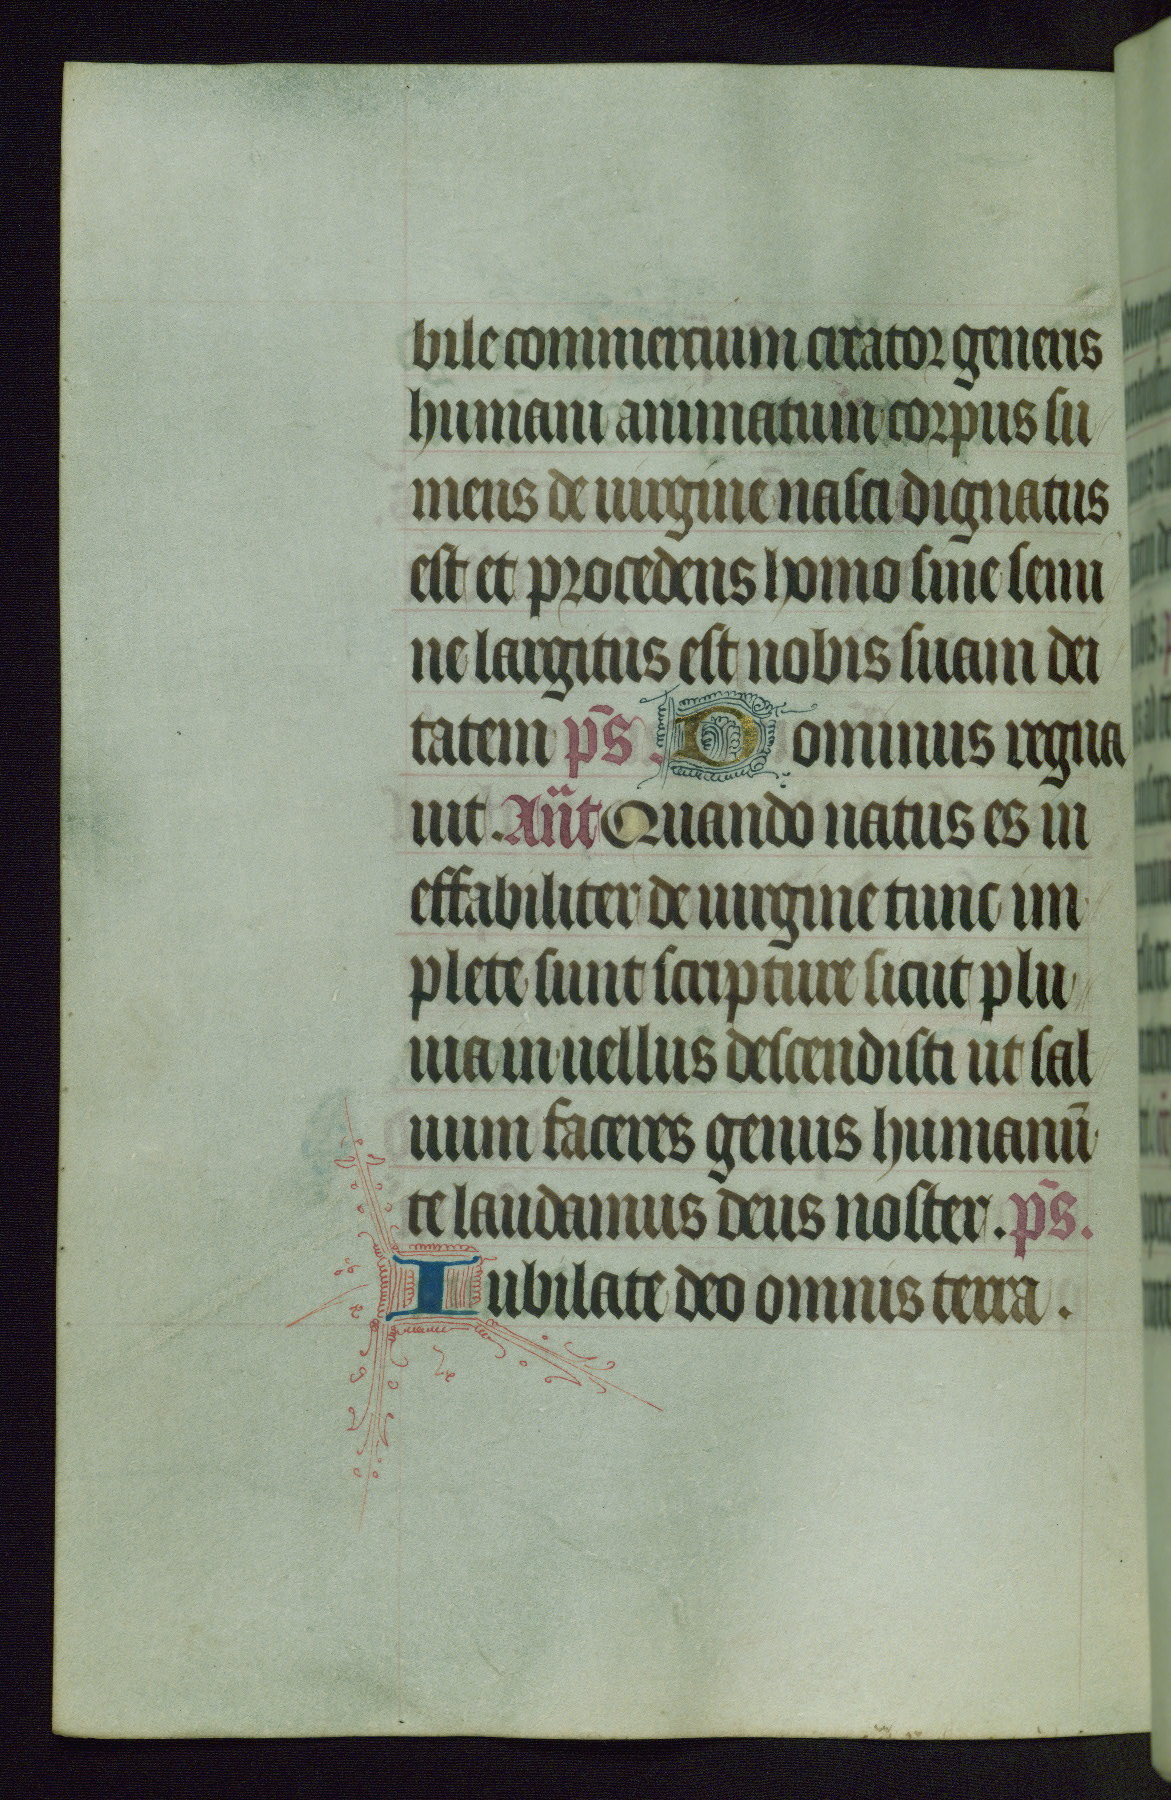 bile commercium creator generis
humani animatum corpus su
mens de uirgine nasci dignatus
est et procedens homo sine semi
ne largitus est nobis suam dei
tatem ps̄. Dominus regna
uit. Añt Quando natus es in
effabiliter de uirgine tunc im
plete sunt scripture sicut plu
uia in uellus descendisti ut sal
uum faceres genus humanū
te laudamus deus noster. ps̄.
Iubilate deo omnis terra.